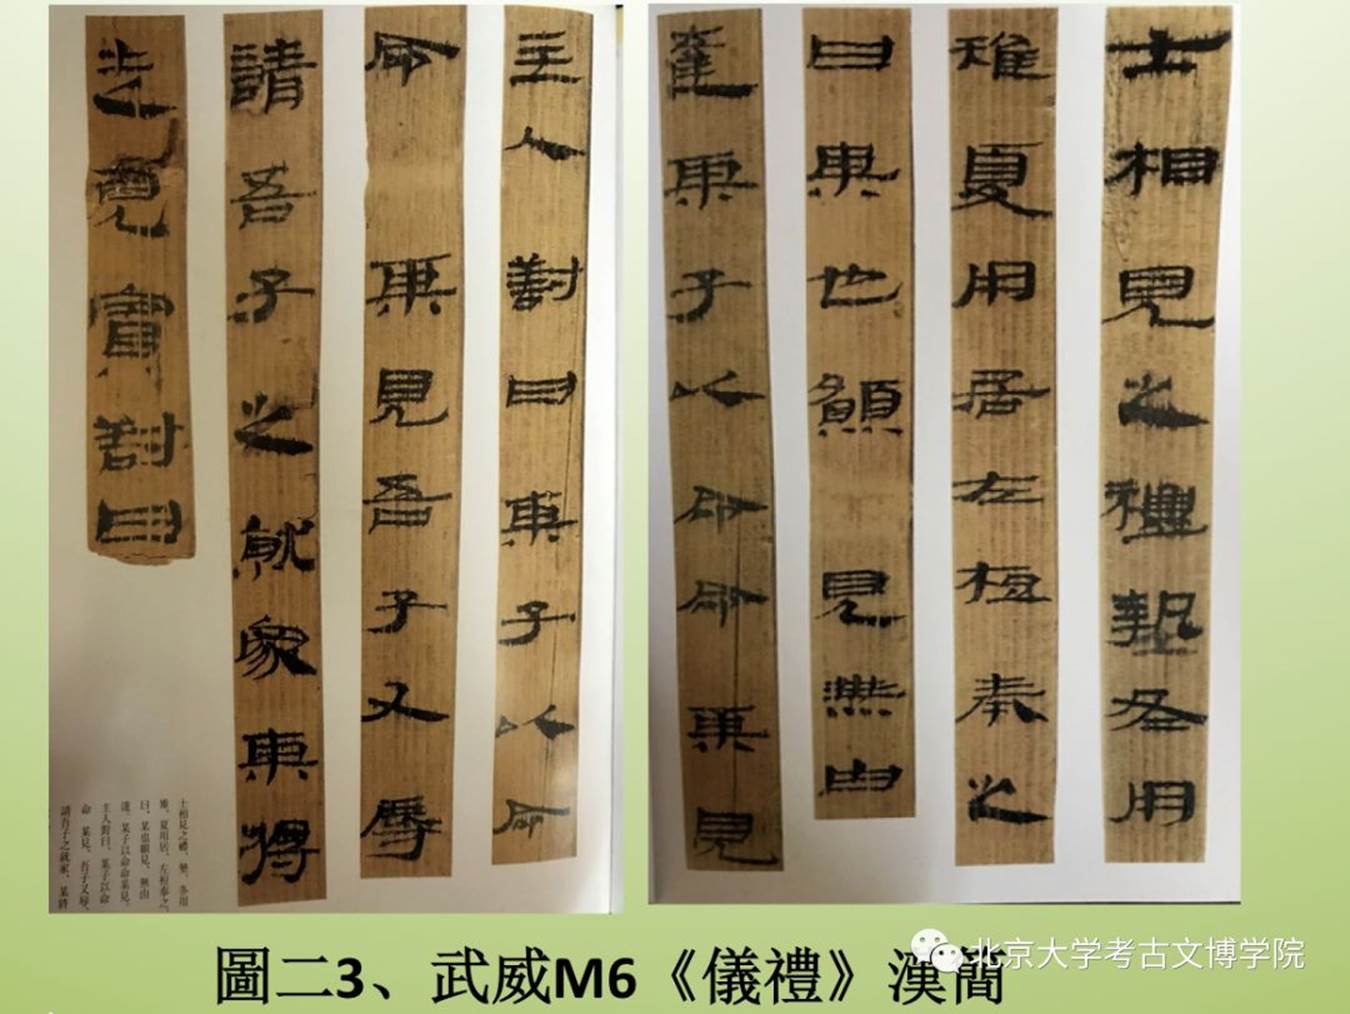 士相見之禮摯冬用
雉夏用居左桓奉之
曰某也願見無由
達某子以命命某見
主人對曰某子以命
命某見吾子又辱
請吾子之就家某將
走見賓對曰
士相見之禮。摯，冬用
雉，夏用居。左桓奉之，
曰：某也願見，無由
達。某子以命命某見。
主人對曰：某子以命
命某見，吾子又辱。
請吾子之就家，某將
圖二3、武威M6《儀禮》漢簡
北京大学考古文博学院